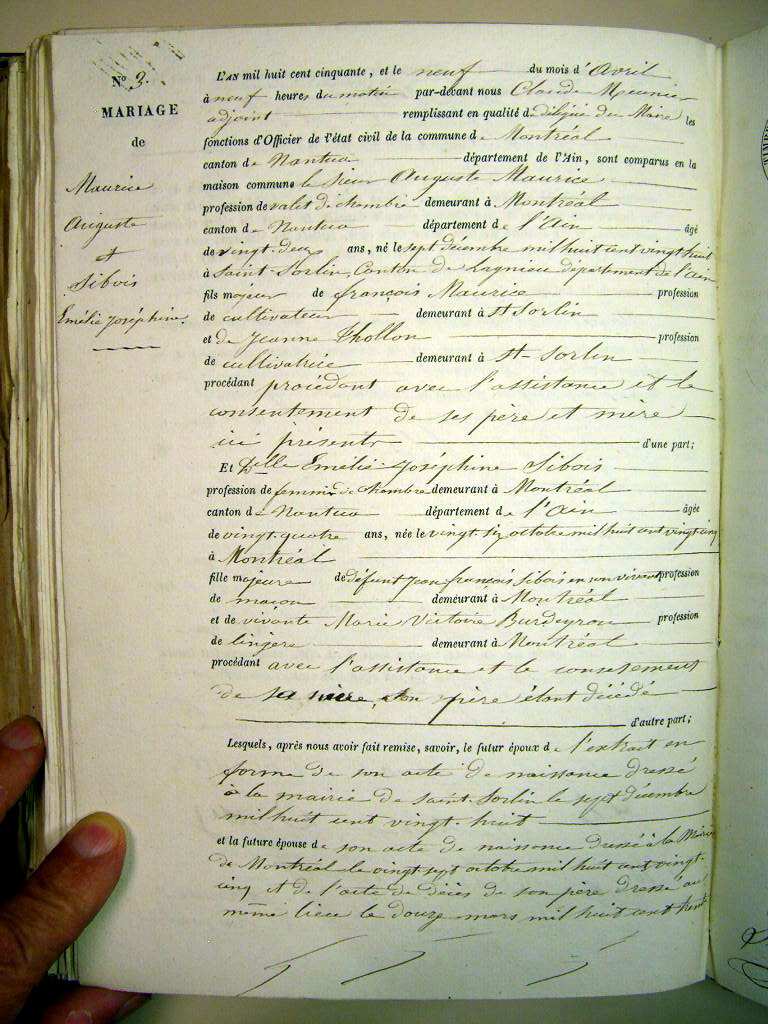 N° 3.
MARIAGE
de
Maurice
Auguste
et
Sibois
Emélie Joséphine.
L'AN mil huit cent cinquante, et le neuf du mois d'Avril
à neuf heures du matin par-devant nous Claude Meunier
adjoint remplissant en qualité de délégué du Maire les
fonctions d'Officier de l'état civil de la commune de Montréal
canton de Nantua département de l'Ain, sont comparus en la
maison commune le sieur Auguste Maurice
profession de valet de chambre demeurant à Montréal
canton de Nantua département de l'Ain âgé
de vingt-deux ans, né le sept décembre mil huit cent vingt huit
à Saint-Sorlin, Canton de Lagnieu département de l'Ain
fils majeur de françois Maurice profession
de cultivateur demeurant à St Sorlin
et de Jeanne Thollon profession
de cultivatrice demeurant à St-Sorlin
procédant procédant avec l'assistance et le
consentement de ses père et mère
ici présents d'une part;
Et Delle Emélie Joséphine Sibois
profession de femme de chambre demeurant à Montréal
canton de Nantua département de l'Ain âgée
de vingt-quatre ans, née le vingt six octobre mil huit cent vingt cinq
à Montréal
fille majeure de défunt Jean françois Sibois en son vivant profession
de maçon demeurant à Montréal
et de vivante Marie Victoire Burdeyron profession
de lingère demeurant à Montréal
procédant avec l'assistance et le consentement
de sa mère, son père étant décédé
d'autre part;
Lesquels, après nous avoir fait remise, savoir, le futur époux de l'extrait en
forme de son acte de naissance dressé
à la mairie de Saint-Sorlin le sept décembre
mil huit cent vingt-huit
et la future épouse de son acte de naissance dressé à la Mairie
de Montréal le vingt sept octobre mil huit cent vingt-
cinq et de l'acte de décès de son père dressé au
même lieu le douze mars mil huit cent trente